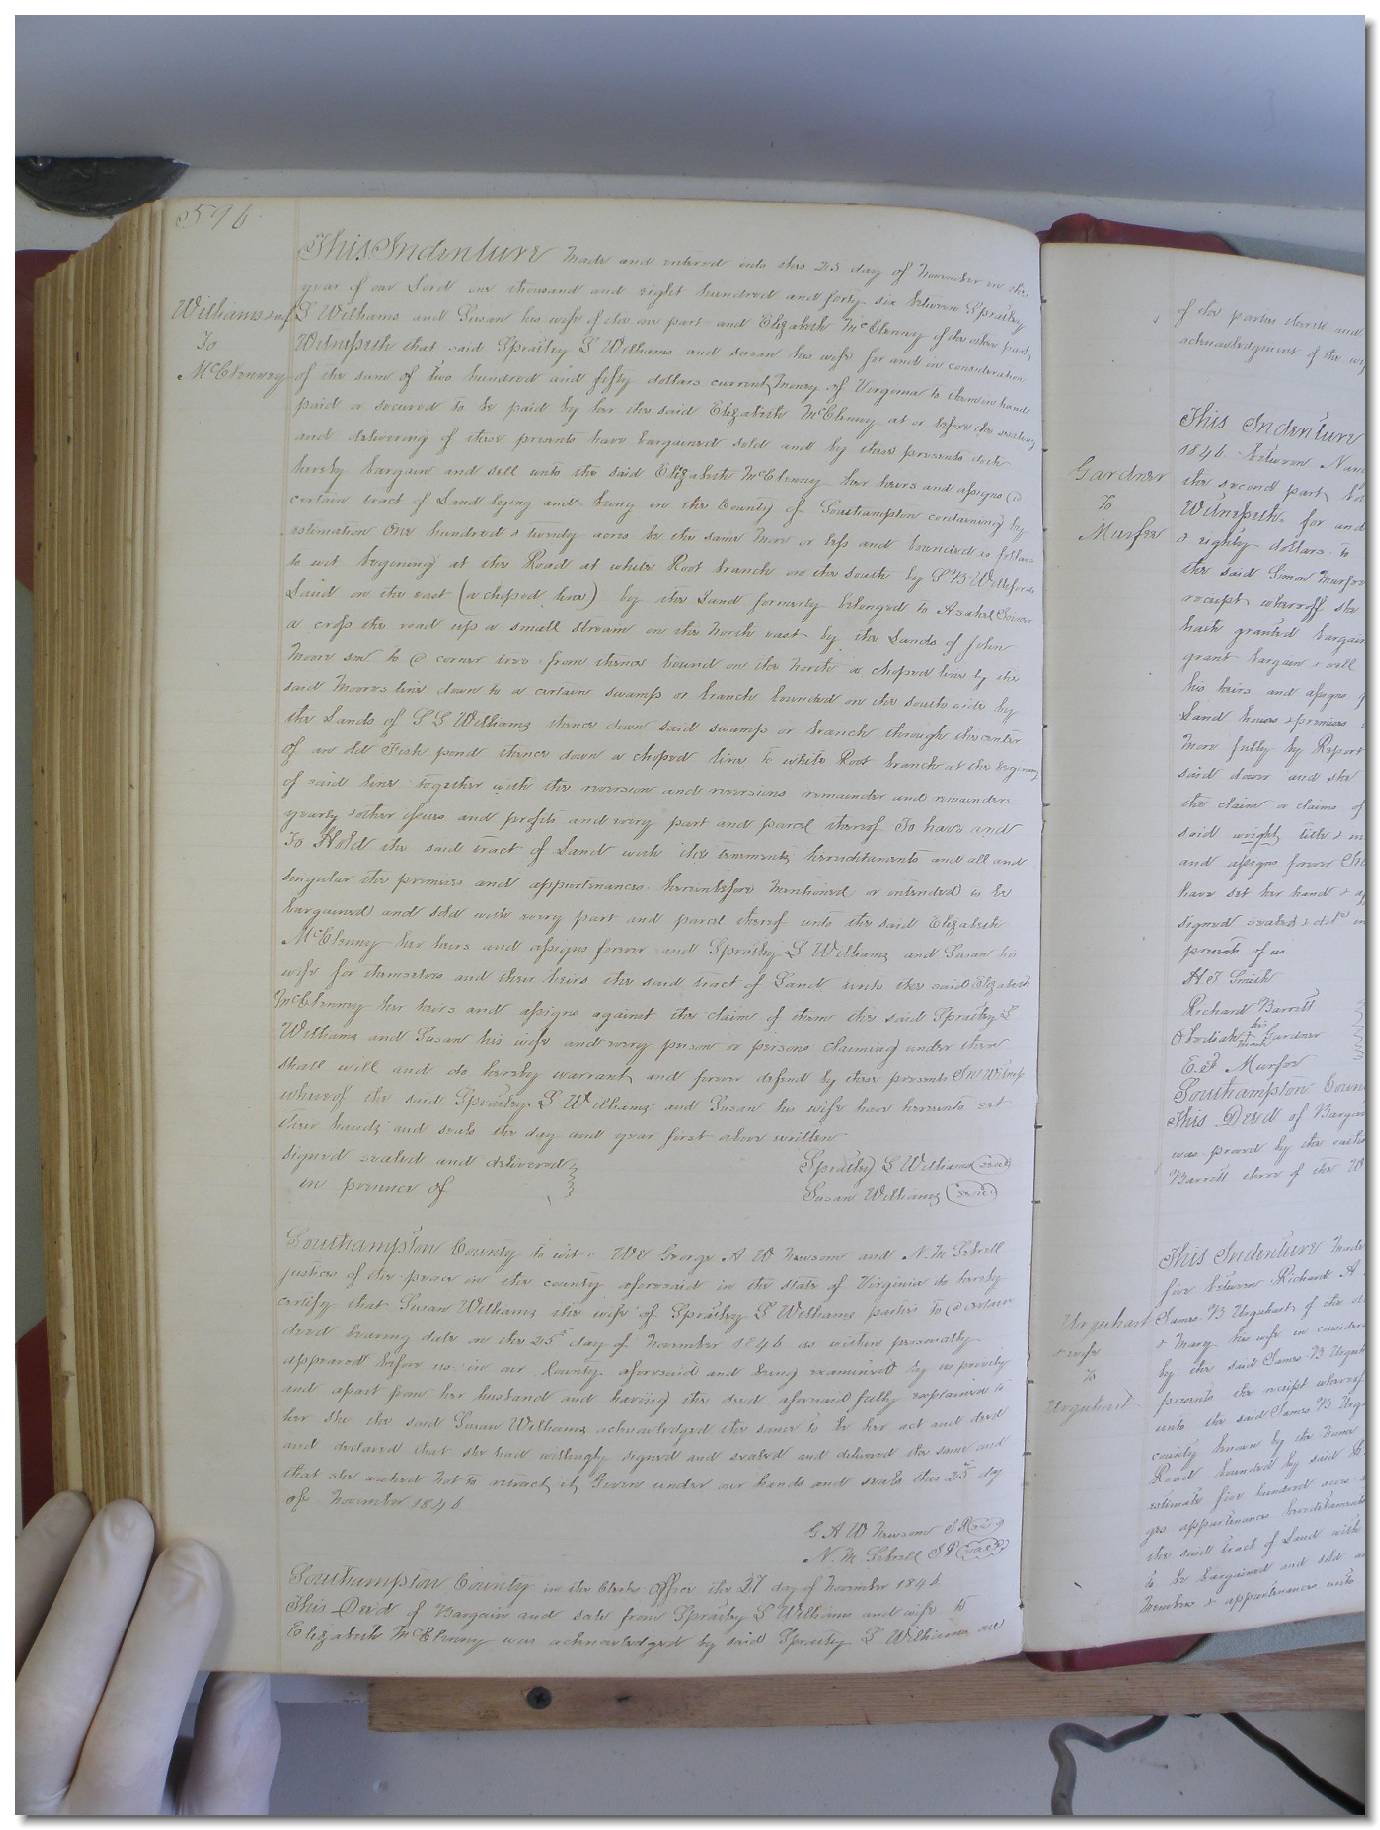 596
This Indenture made and entered into this 25 day of November in the
year of our Lord one thousand and eight hundred and forty six between Spratley
Williams & wf
S Williams and Susan his wife of the one part and Elizabeth McClenny of the other part
To
Witnesseth that said Spratley S Williams and Susan his wife for and in consideration
McClenny
of the sum of two hundred and fifty dollars current money of Virginia to them in hand
paid or secured to be paid by her the said Elizabeth McClenny at or before the sealing
and delivering of these presents have bargained sold and by these presents doth
hereby bargain and sell unto the said Elizabeth McClenny her heirs and assigns a
certain tract of Land lying and being in the County of Southampton containing by
estimation One hundred & twenty acres be the same more or less and bounded as follows
to wit begining at the Road at white Root branch on the south by
Land on the east (a choped line) by the Land formerly belonged to
a cross the road up a small stream on the north east by the Lands of John
Moore sen to @ corner tree from thence bound on the North a choped line by the
said Moores line down to a certain swamp or branch bounded on the south side by
the Lands of S S Williams thence down said swamp or branch through the center
of an old Fish pond thence down a choped line to white Root branch at the begining
of said line together with the reversion and reversions remainder and remainders
yearly & other issues and profits and every part and parcel thereof To have and
To Hold the said tract of Land with the tenements hereditaments and all and
singular the premises and appurtenances hereinbefore mentioned or intended to be
bargained and sold with every part and parcel thereof unto the said Elizabeth
McClenny her heirs and assigns forever and Spratley S Williams and Susan his
wife for themselves and their heirs the said tract of Land unto the said Elizabeth
McClenney her heirs and assigns against the claim of them the said Spratley S
Williams and Susan his wife and every person or persons claiming under them
shall will and do hereby warrant and forever defend by these presents In Witness
whereof the said Spratley S Williams and Susan his wife have hereunto set
their hands and seals the day and year first above written
signed sealed and delivered
Spratley S Williams (seal)
in presence of
Susan Williams (seal)
Southampton County to wit: We George A W Newsom and N. M. Sebrell
justices of the peace in the county aforesaid in the state of Virginia do hereby
certify that Susan Williams the wife of Spratley S Williams parties to @ certain
deed bearing date on the 25th day of November 1846 as within personally
appeared before us in our County aforesaid and being examined by us privily
and apart from her husband and having the deed aforesaid fully explained to
her she the said Susan Williams acknowledged the same to be her act and deed
and declared that she had willingly signed and sealed and delivered the same and
that she wished not to retract it, Given under our hands and seals this 25th day
of November 1846
G A W Newsom J P (seal)
N. M. Sebrell J P (seal)
Southampton County in the Clerks office the 27 day of November 1846
This Deed of Bargain and sale from Spratley S Williams and wife to
Elizabeth McClenny was acknowledged by said Spratley S Williams and
of the parties thereto and
acknowledgment of the
This Indenture
1846 between
Gardner
the second part
To
Witnesseth for and
Murfee
& eighty dollars to
the said Simon Murfee
receipt whereoff she
hath granted bargain
grant bargain & sell
his heirs and assigns
Land houses & premises
more fully by Report
said dower and she
the claim or claims of
said wright title &
and assigns forever
have set her hand &
signed sealed & deld in
presents of us
H T Smith
Richard Barrett
Obediah his mark Gardner
E. T. Murfee
Southampton Coun
This Deed of Bargain
was proved by the oaths
Barrett three of the
This Indenture made
five between Richard A
Urquhart
James B Urquhart of the
& wife
& Mary his wife in consider
To
by the said James B Urquh
Urquhart
presents the receipt whereof
unto the said James B Urq
county known by the name
Road bounded by said
estimate five hundred acres
ges appurtenances hereditaments
the said tract of Land with
to be bargained and sold
members & appurtenances unto